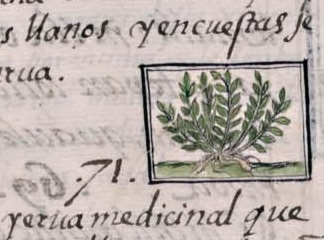 s llanos y encuestas se
erua.
.71.
yerua medicinal que